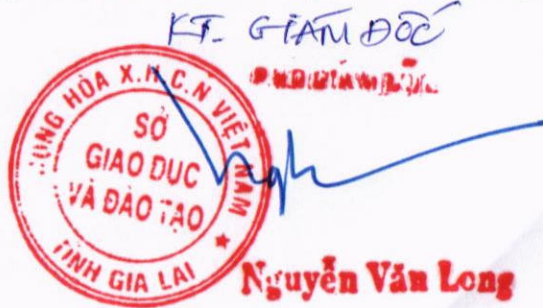 KT. GIÁM ĐỐC
CỘNG HÒA X.H.C.N VIỆT NAM ★
SỞ
GIAO DUC
VÀ ĐÀO TẠO
TỈNH GIA LAI
Nguyễn Văn Long